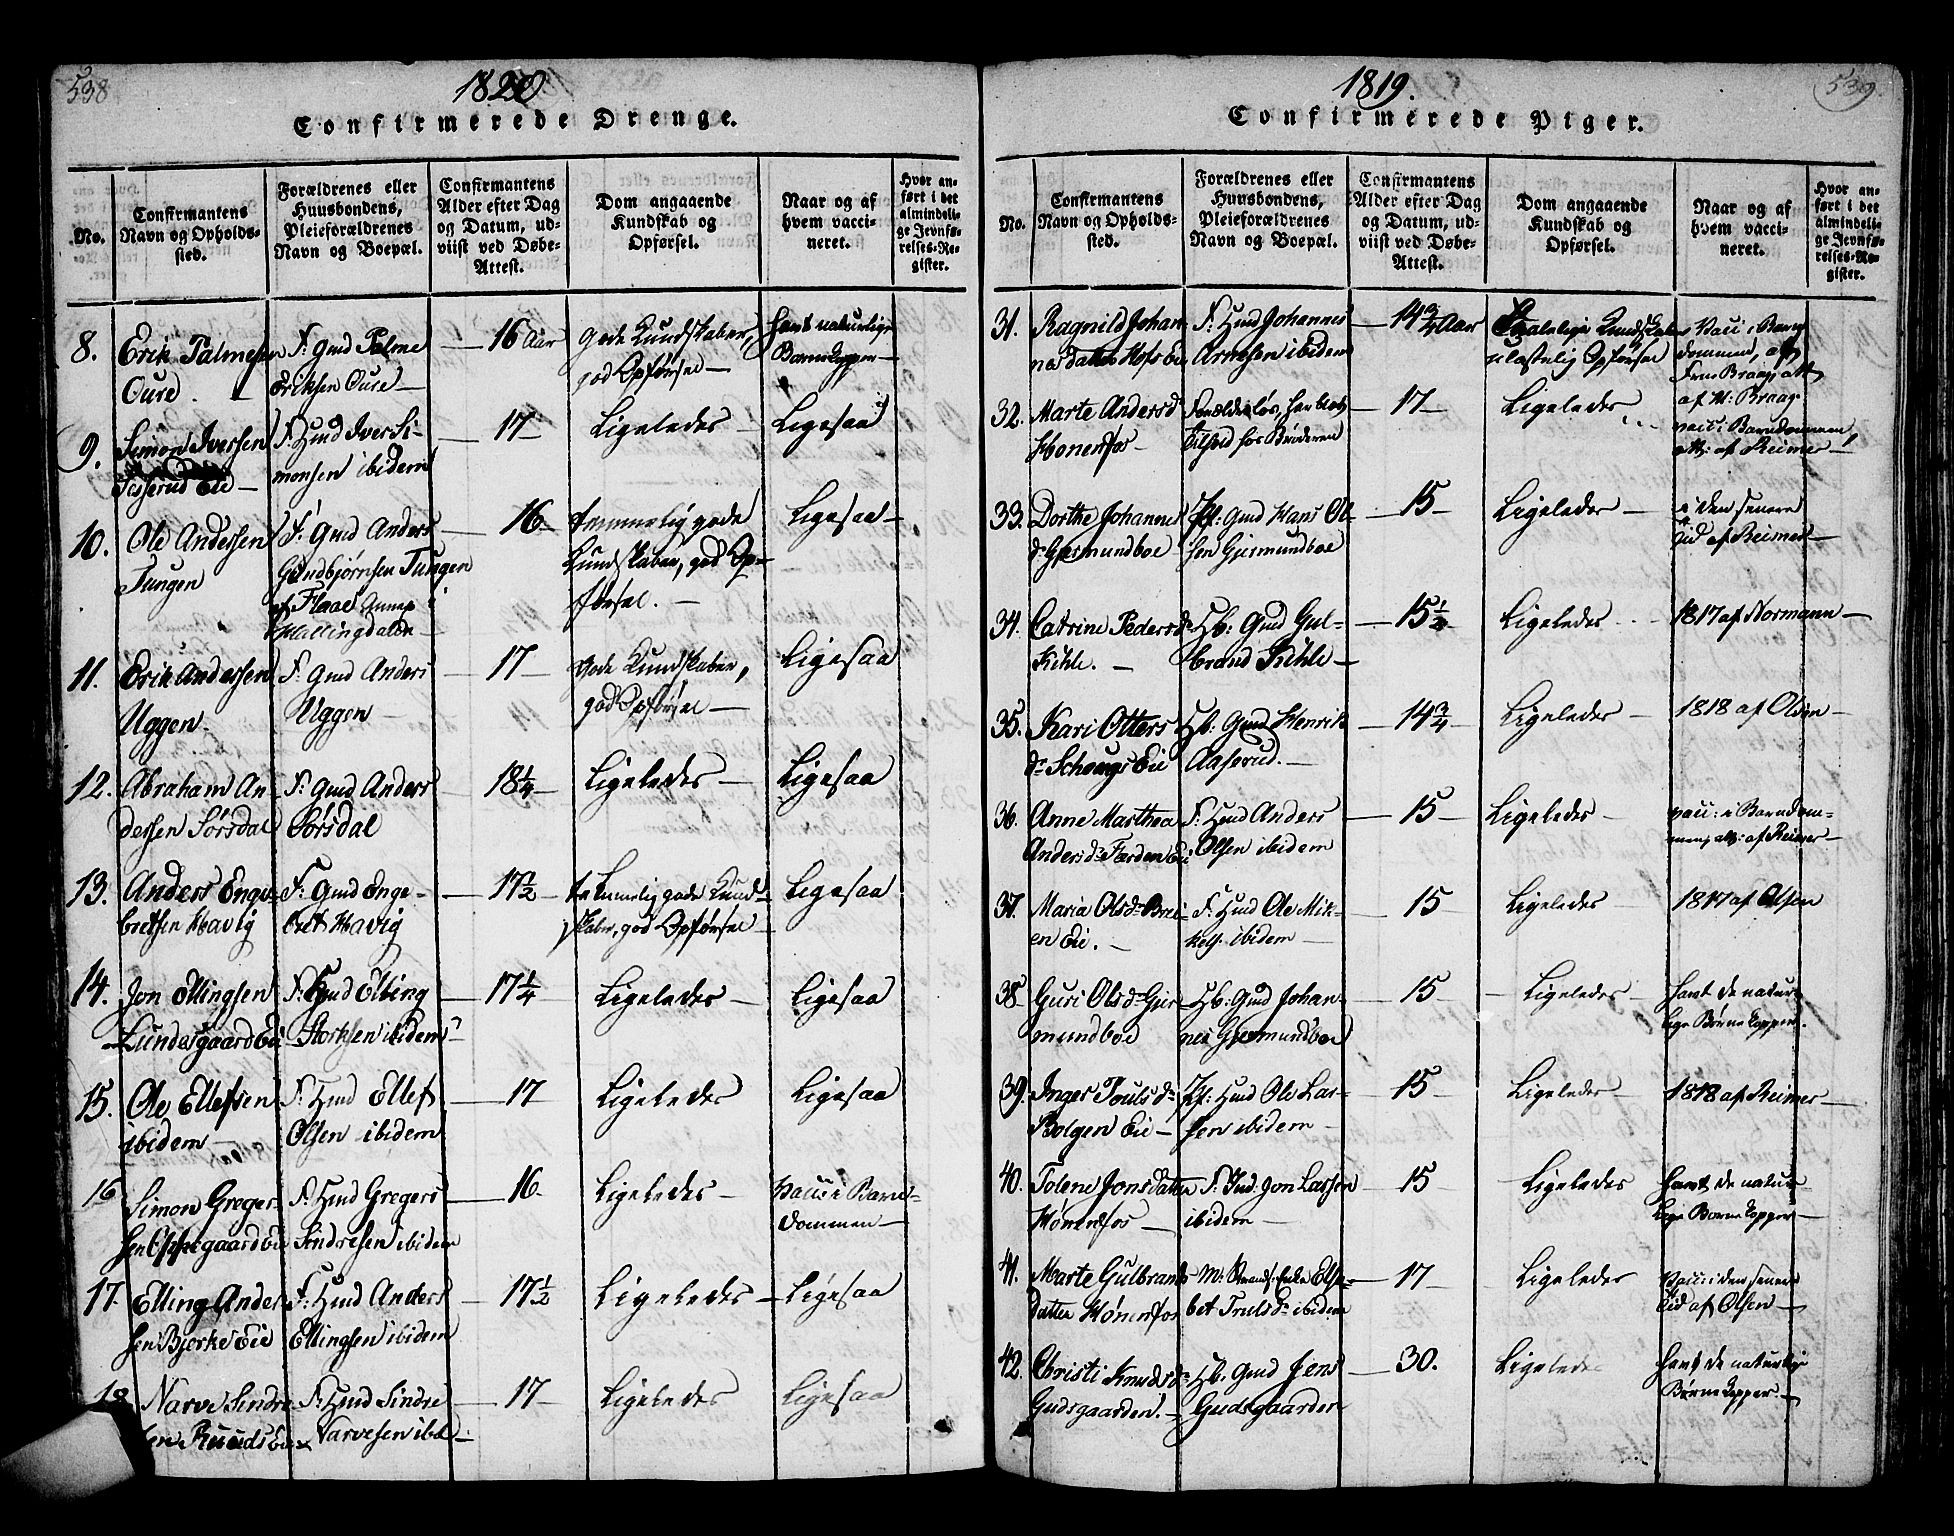 538
1820
Confirmerede Drenge.
No.
Confirmantens
Navn og Opholds-
sted.
Forældrenes eller
Huusbondens,
Pleieforældrenes
Navn og Boepæl.
Confirmantens
Alder efter Dag
og Datum, ud-
viist ved Døbe-
Attest.
Dom angaaende
Kundskab og
Opførsel.
Naar og af
hvem vacci-
neret.
Hvor an-
ført i det
almindeli-
ge Jevnfø-
relses-Re-
gister.
8.
Erik Palmesen
Oure.
F: Gmd Palme
Eriksen Oure
16 Aar
gode Kundskaber,
god Opførsel
havt naturlige
Børnekopper
9.
Simon Iversen
Eie
F: Hmd Iver Si-
monsen ibidem
17
Ligeledes
Ligesaa
10.
Ole Andersen
Tungen
F: Gmd Anders
Gundbjørnsen Tungen
af Flaae Annex i
Hallingdalen
16
temmelig gode
Kundskaber, god Op-
førsel.
Ligesaa
11.
Erik Andersen
Uggen.
F: Gmd Anders
Uggen
17
gode Kundskaber,
god Opførsel
Ligesaa
12.
Abraham An-
dersen Sørsdal
F: Gmd Anders
Sørsdal
18 1/4
Ligeledes
Ligesaa
13.
Anders Enge-
bretsen Havig
F: Gmd Enge-
bret Havig
17 1/2
temmelig gode Kund-
skaber, god Opførsel
Ligesaa
14.
Jon Ellingsen
Lundesgaard Eie
F: Hmd Elling
Storksen ibidem
17 1/4
Ligeledes
Ligesaa
15.
Ole Ellefsen
ibidem
F: Hmd Ellef
Olsen ibidem
17
Ligeledes
Ligesaa
16
Simon Greger-
sen Oppegaard Eie
F: Hmd Gregers
Sindresen ibidem
16
Ligeledes
vacc: i Barn-
dommen
17.
Elling Ander-
sen Bjerke Eie
F: Hmd Anders
Ellingsen ibidem
17 1/2
Ligeledes
Ligesaa
18
Narve Sindre-
sen Ruuds Eie
F: Hmd Sindre
Narvesen ibd
17
Ligeledes
Ligesaa
539.
1819.
Confirmerede Piger.
No.
Confirmantens
Navn og Opholds-
sted.
Forældrenes eller
Huusbondens,
Pleieforældrenes
Navn og Boepæl.
Confirmantens
Alder efter Dag
og Datum, ud-
viist ved Døbe-
Attest.
Dom angaaende
Kundskab og
Opførsel.
Naar og af
hvem vacci-
neret.
Hvor an-
ført i det
almindeli-
ge Jevnfø-
relses-Re-
gister.
31.
Ragnild Johan-
nesdatter Hofs Eie
F: Hmd Johannes
Arnesen ibidem
14 3/4 Aar
Taalelige Kundskaber
ulastelig Opførsel
Vacc: i Barn-
dommen,
af H: Braag
32.
Marte Andersd:
Honenfos
Forældreløs, har blot
Tilhold hos Brøderen
17
Ligeledes
vacc: i Barndommen
att: af Reimer
33.
Dorthe Johannes
d: Gjermundboe
Pf: Gmd Hans Ol-
sen Gjermundboe
15
Ligeledes
i den senere
Tid af Reimer
34.
Catrine Pedersd:
Kihle.
Hb: Gmd Gul-
brand Kihle
15 1/4
Ligeledes
1817 af Normann
35.
Kari Otters
d: Schougs Eie
Hb: Gmd Henrik
Aaserud.
14 3/4
Ligeledes
1818 af Olsen
36.
Anne Marthea
Andersd: Færden Eie
F: Hmd Anders
Olsen ibidem
15
Ligeledes
vacc: i Barndom-
men, att: af Reimer
37.
Maria Olsd: Brei-
en Eie.
F: Hmd Ole Mik-
kels: ibidem
15
Ligeledes
1817 af Olsen
38
Guri Olsd: Gjer-
mundboe
Hb: Gmd Johan-
nes Gjermundboe
15
Ligeledes
havt de natur-
lige Børnekopper.
39.
Inger Pouls d:
Bolgen Eie
Pf: Hmd Ole Lar-
sen ibidem
15
Ligeledes
1818 af Reimer
40.
Tolene Jonsdatter
Hønenfos
F: Ind: Jon Larsen
ibidem
15
Ligeledes
havt de natur-
lige Børnekopper
41.
Marte Gulbrands
datter Hønenfos
M: Enke Else-
bet Trulsd: ibidem
17
Ligeledes
vacc: i den senere
Tid af Olsen
42.
Christi Knudsd:
Gudsgaarden.
Hb. Gmd Jens
Gudsgaarden
30.
Ligeledes
havt de naturlige
Børnekopper.